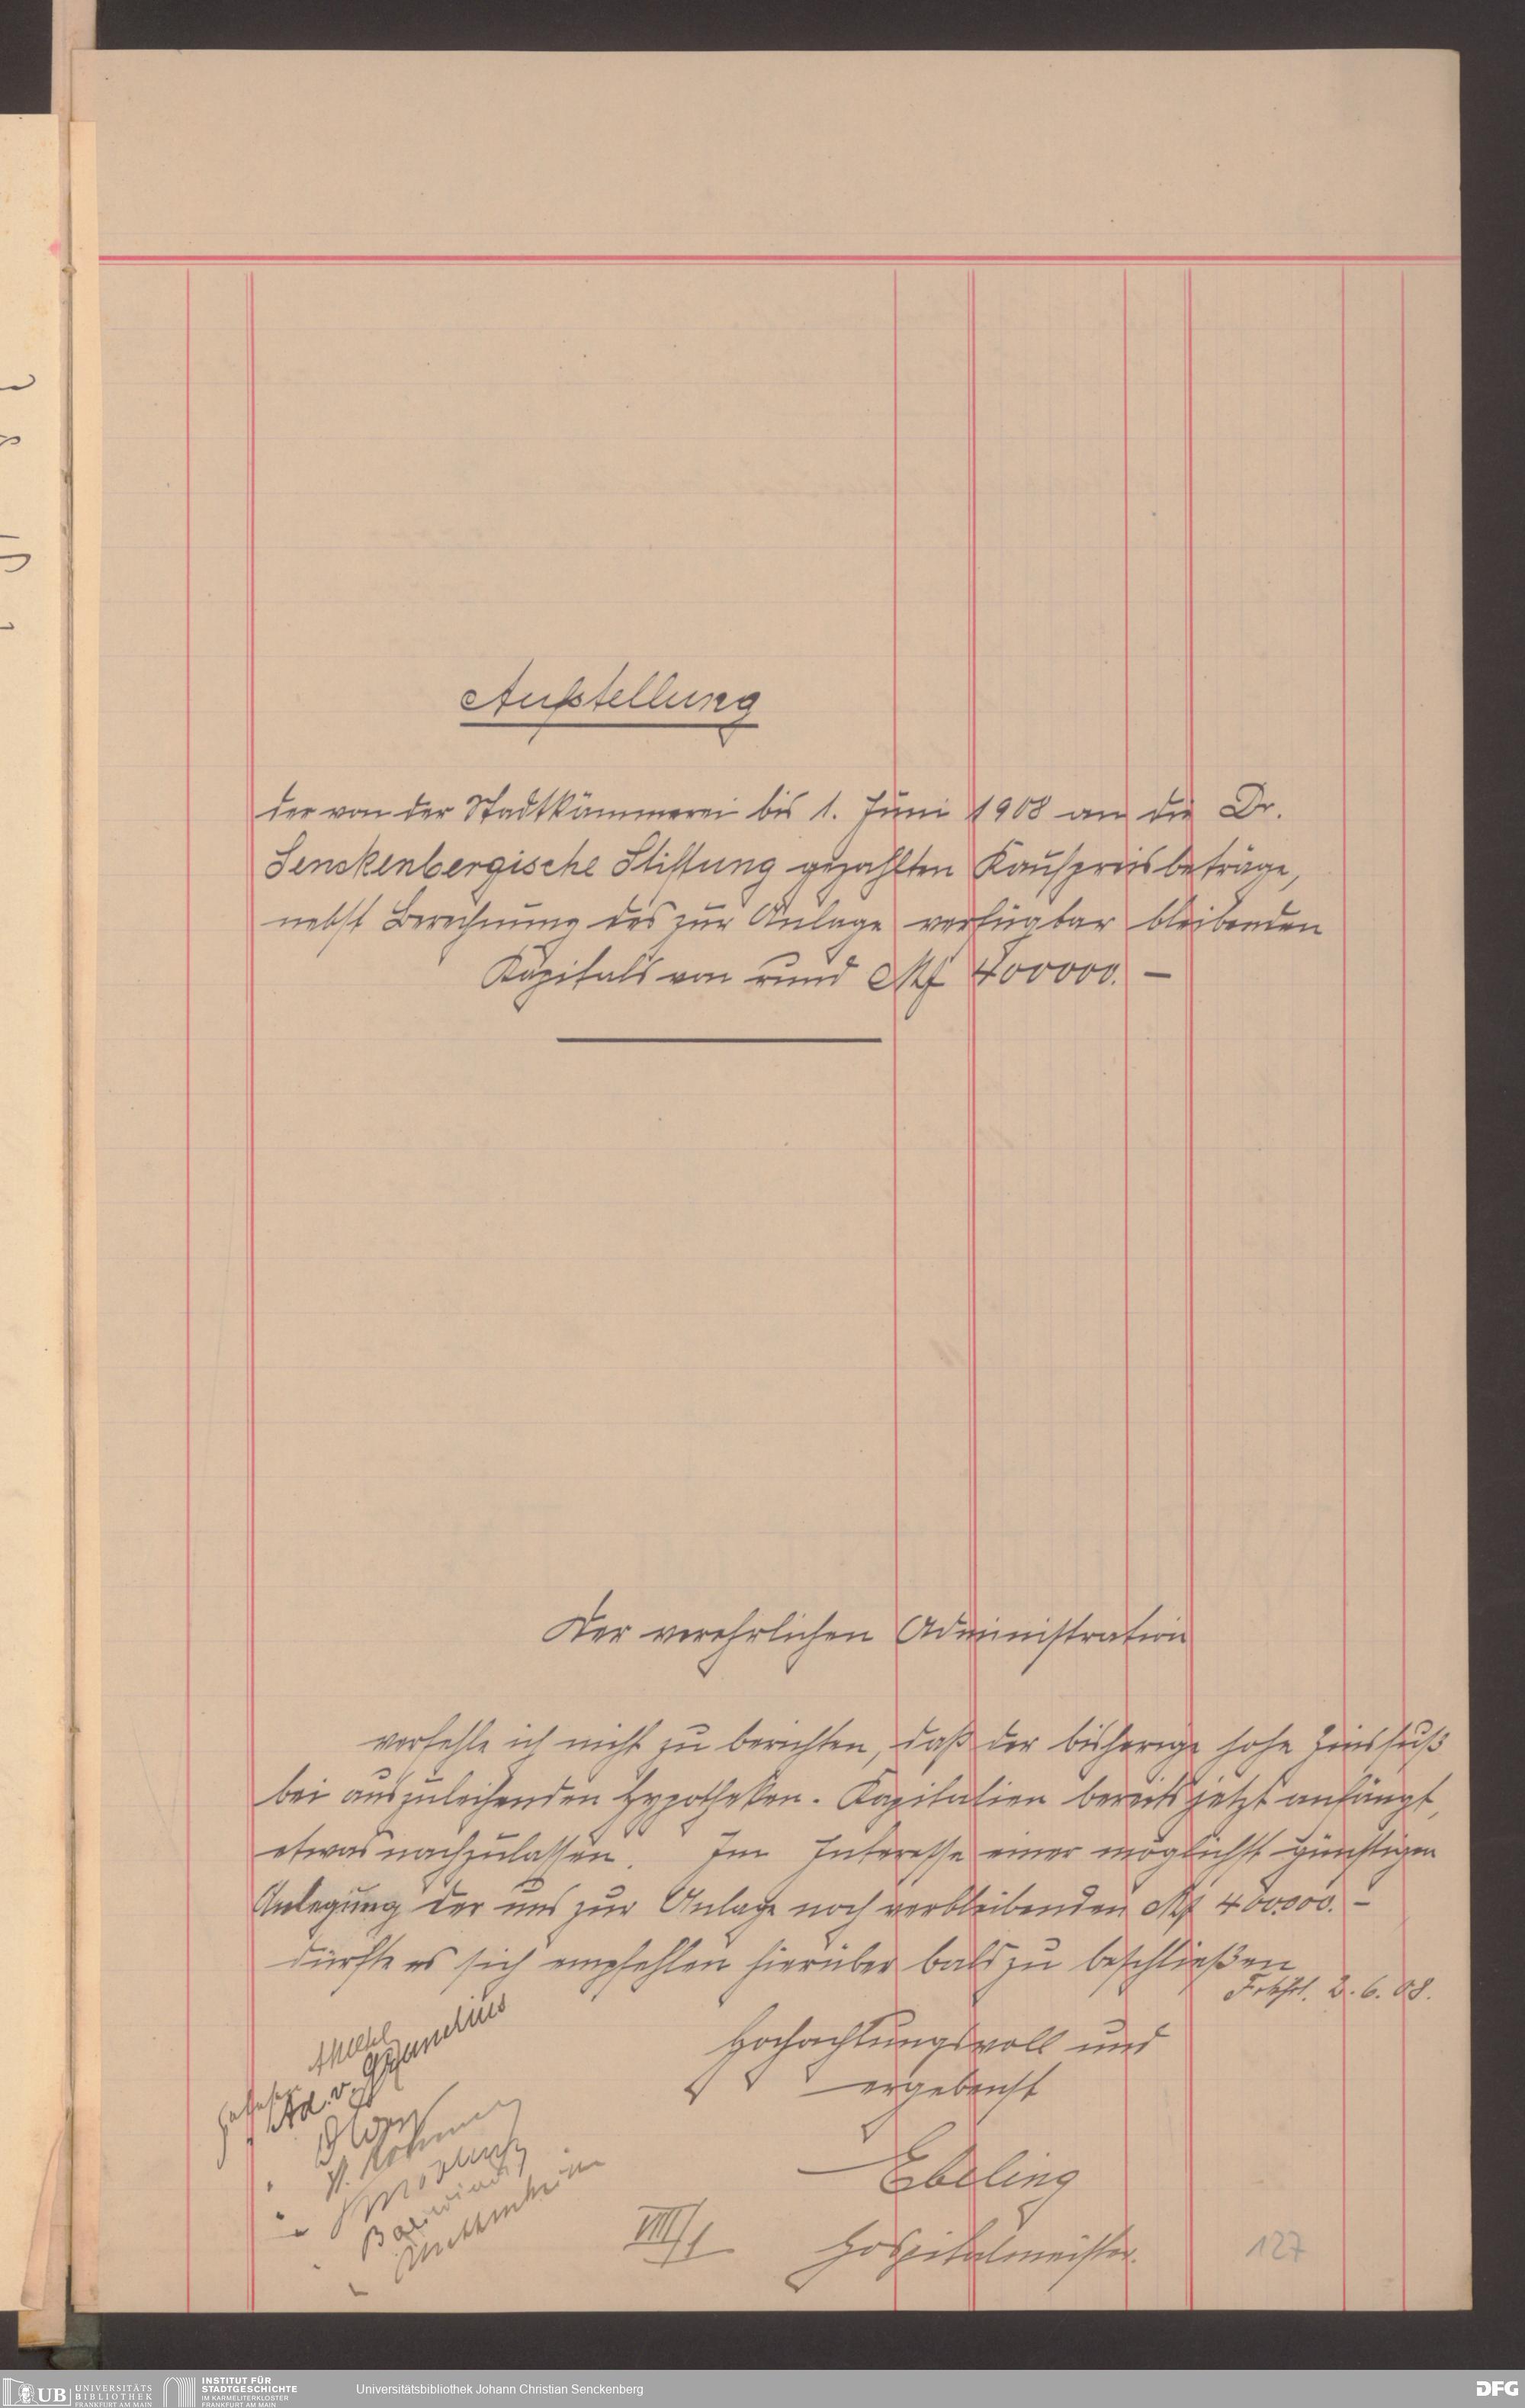 Aufstellung
der von der Stadtkämmerei bis 1. Juni 1908 an die Dr.
Senckenbergische Stiftung gezahlten Kaufpreisbeträge,
nebst Berechnung des zur Anlage verfügbar bleibenden
Kapitals von rund Mk 400000. —
Der verehrlichen Administration
verfehle ich nicht zu berichten, daß der bisherige hohe Zinsfuß
bei auszuleihenden Hypotheken-Kapitalien bereits jetzt anfängt,
etwas nachzulassen. Im Interesse einer möglichst günstigen
Anlegung der uns zur Anlage noch verbleibenden Mk 400000. —
dürfte es sich empfehlen hierüber bald zu beschließen
Frkfrt. 2. 6. 08.
Hochachtungsvoll und
ergebenst
Ebeling
Hospitalmeister.
gelesen
Ad. v. Grunelius
VIII/1
127
UB UNIVERSITÄTS BIBLIOTHEK FRANKFURT AM MAIN
INSTITUT FÜR STADTGESCHICHTE IM KARMELITERKLOSTER FRANKFURT AM MAIN
Universitätsbibliothek Johann Christian Senckenberg
DFG